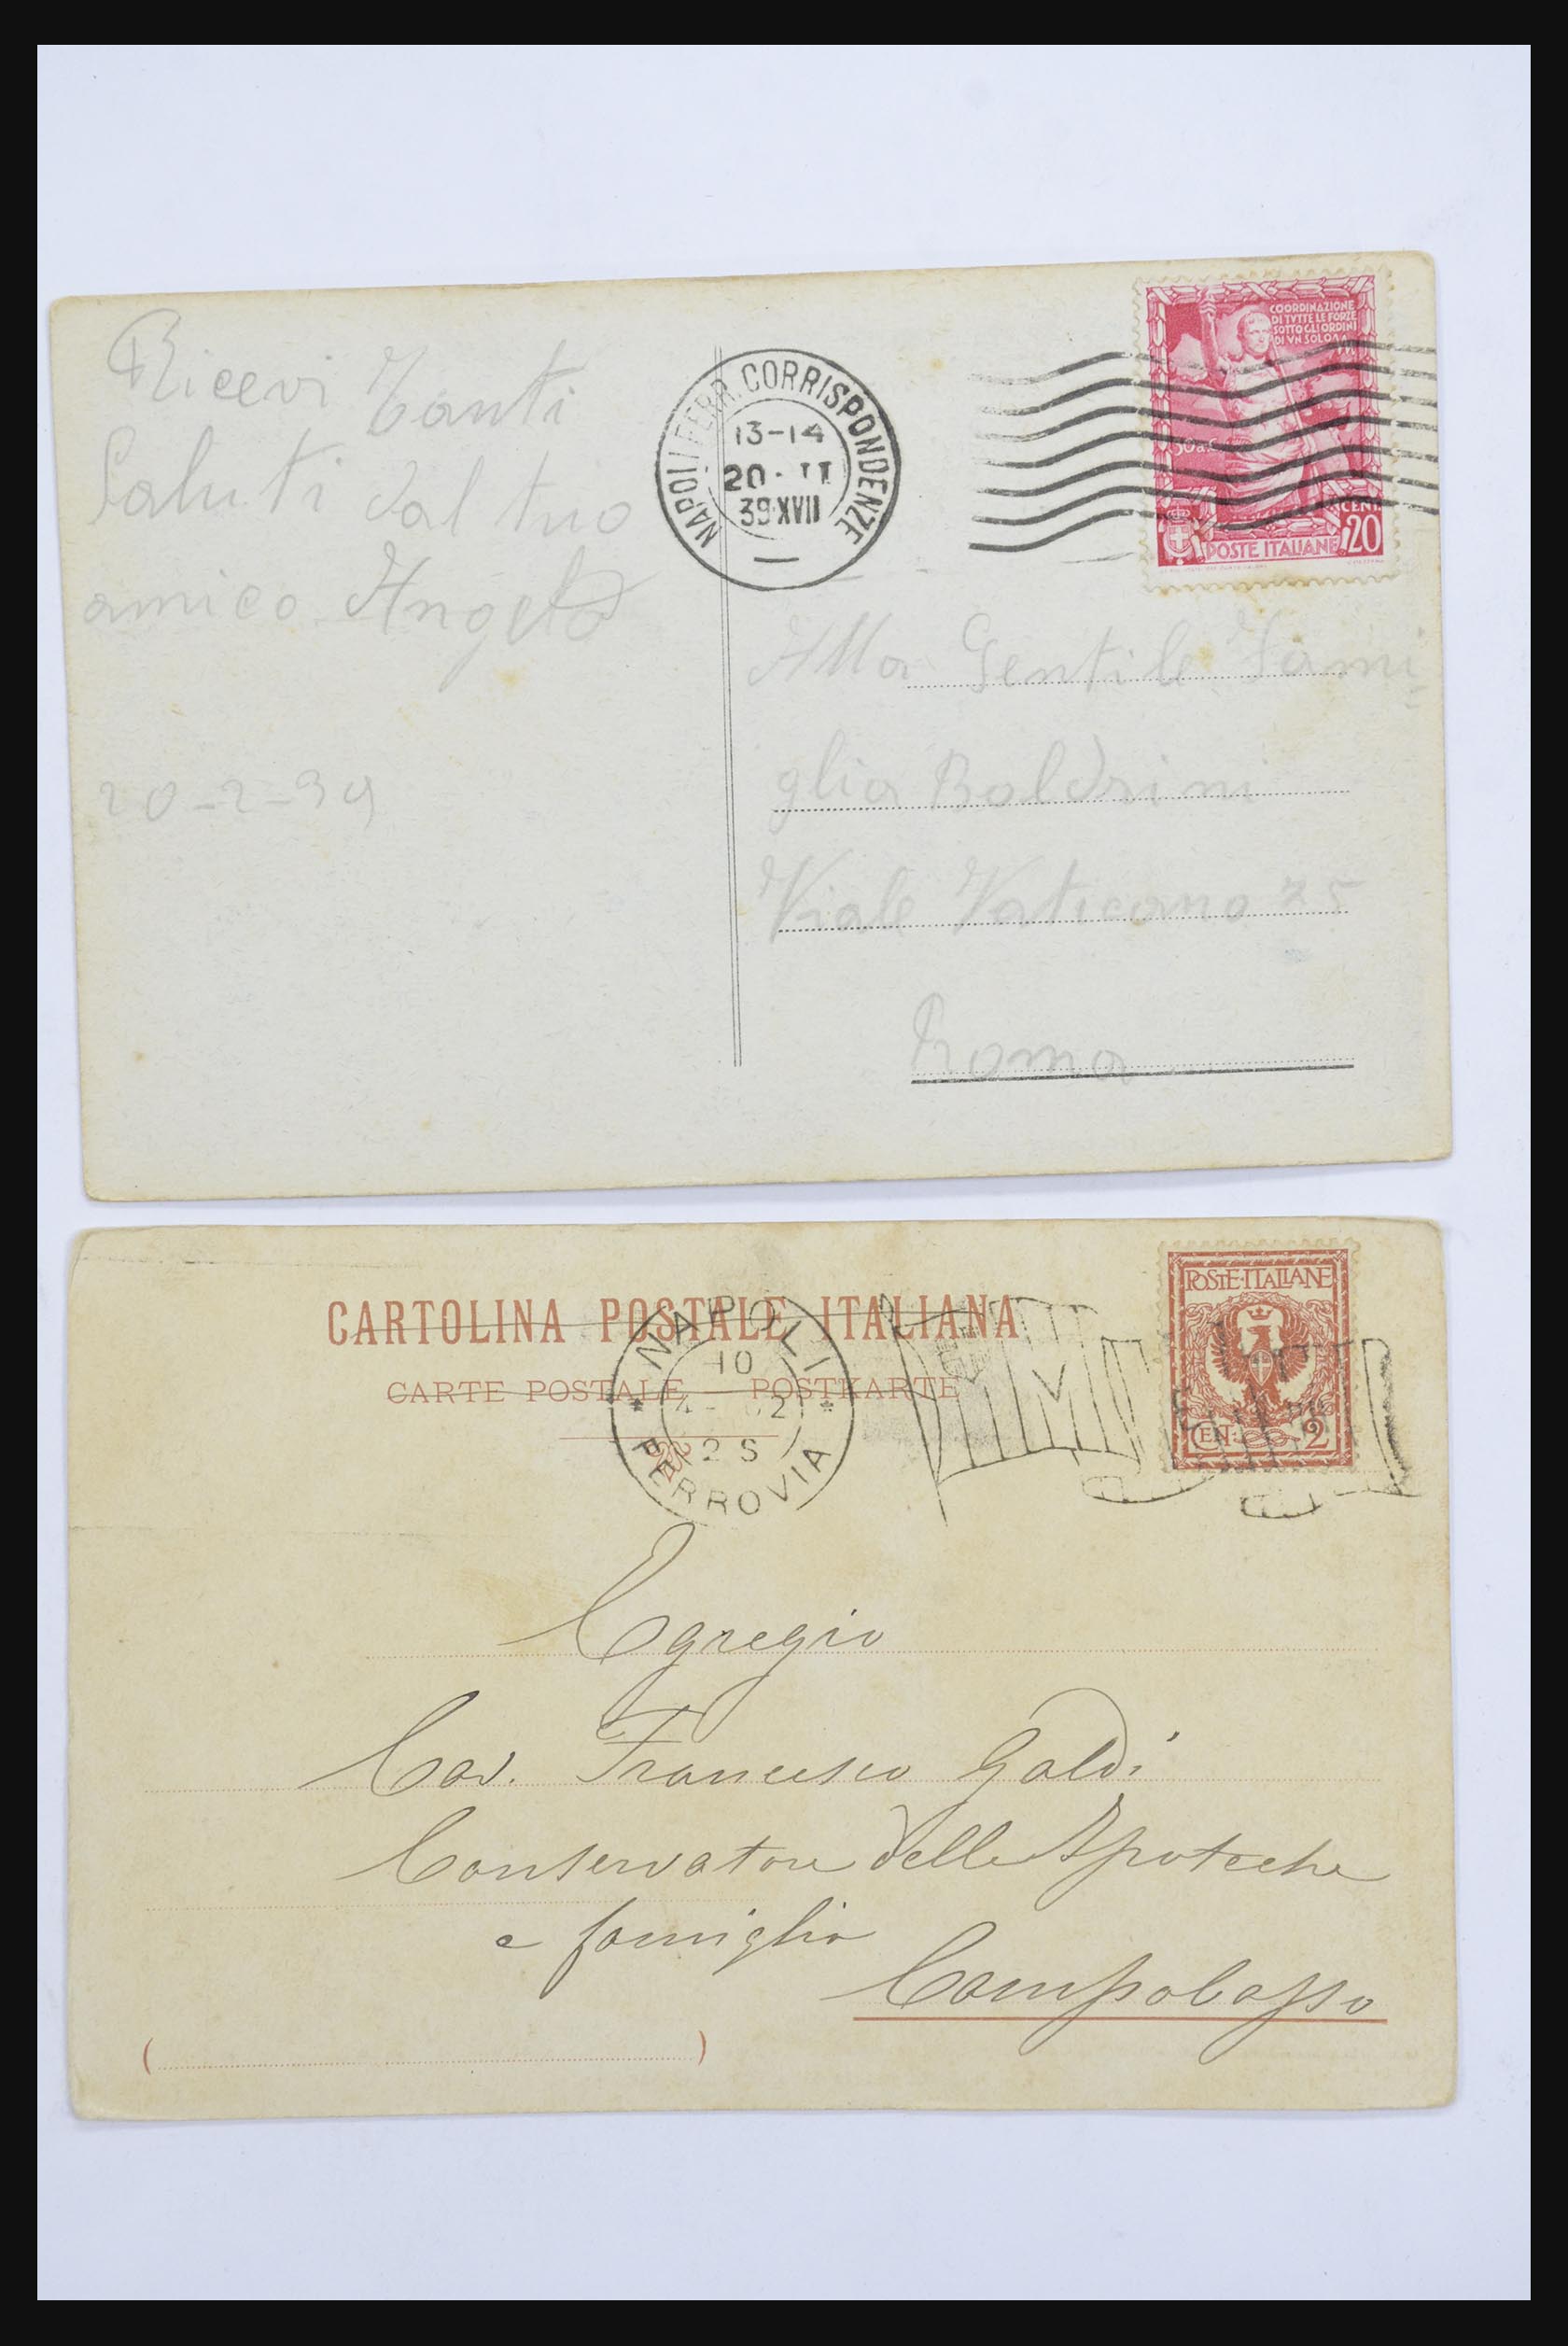 Ricevi Tanti
Saluti dal tuo
amico Angelo
20-2-39
NAPOLI FERR. CORRISPONDENZE
13-14
20·II
39·XVII
COORDINAZIONE
DI TVTTE LE FORZE
SOTTO GLI ORDINI
DI VN SOLO
CENT.
20
POSTE ITALIANE
Alla Gentile Fami
glia Boldrini
Viale Vaticano 75
Roma
CARTOLINA POSTALE ITALIANA
CARTE POSTALE — POSTKARTE
NAPOLI
10
2 S
FERROVIA
POSTE·ITALIANE
CEN: 2
Egregio
Cav. Francesco Galdi
Conservatore delle Ipoteche
e famiglia
Campobasso
( )